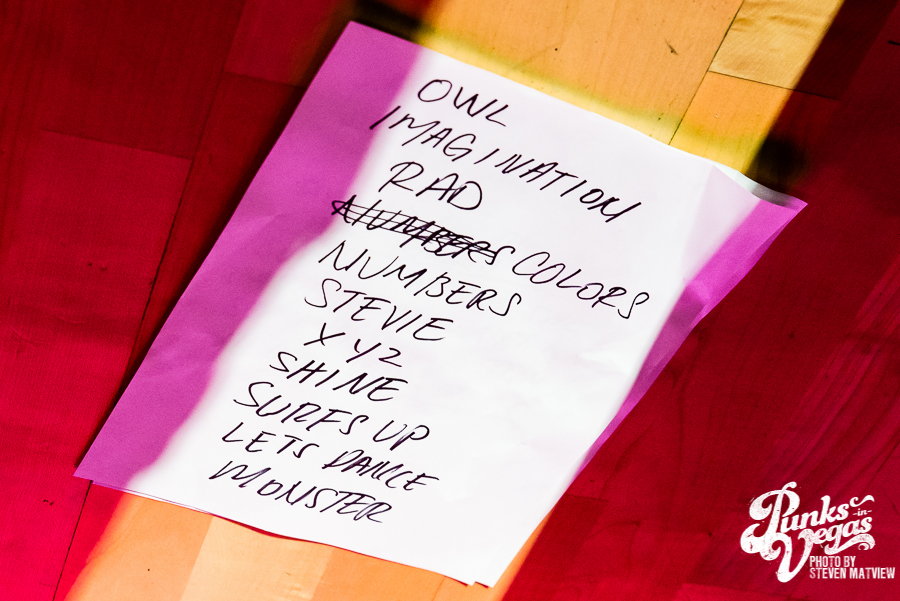 OWL
IMAGINATION
RAD
NUMBERS COLORS
NUMBERS
STEVIE
XYZ
SHINE
SURFS UP
LETS DANCE
MONSTER
Punks
-in-
Vegas
PHOTO BY
STEVEN MATVIEW